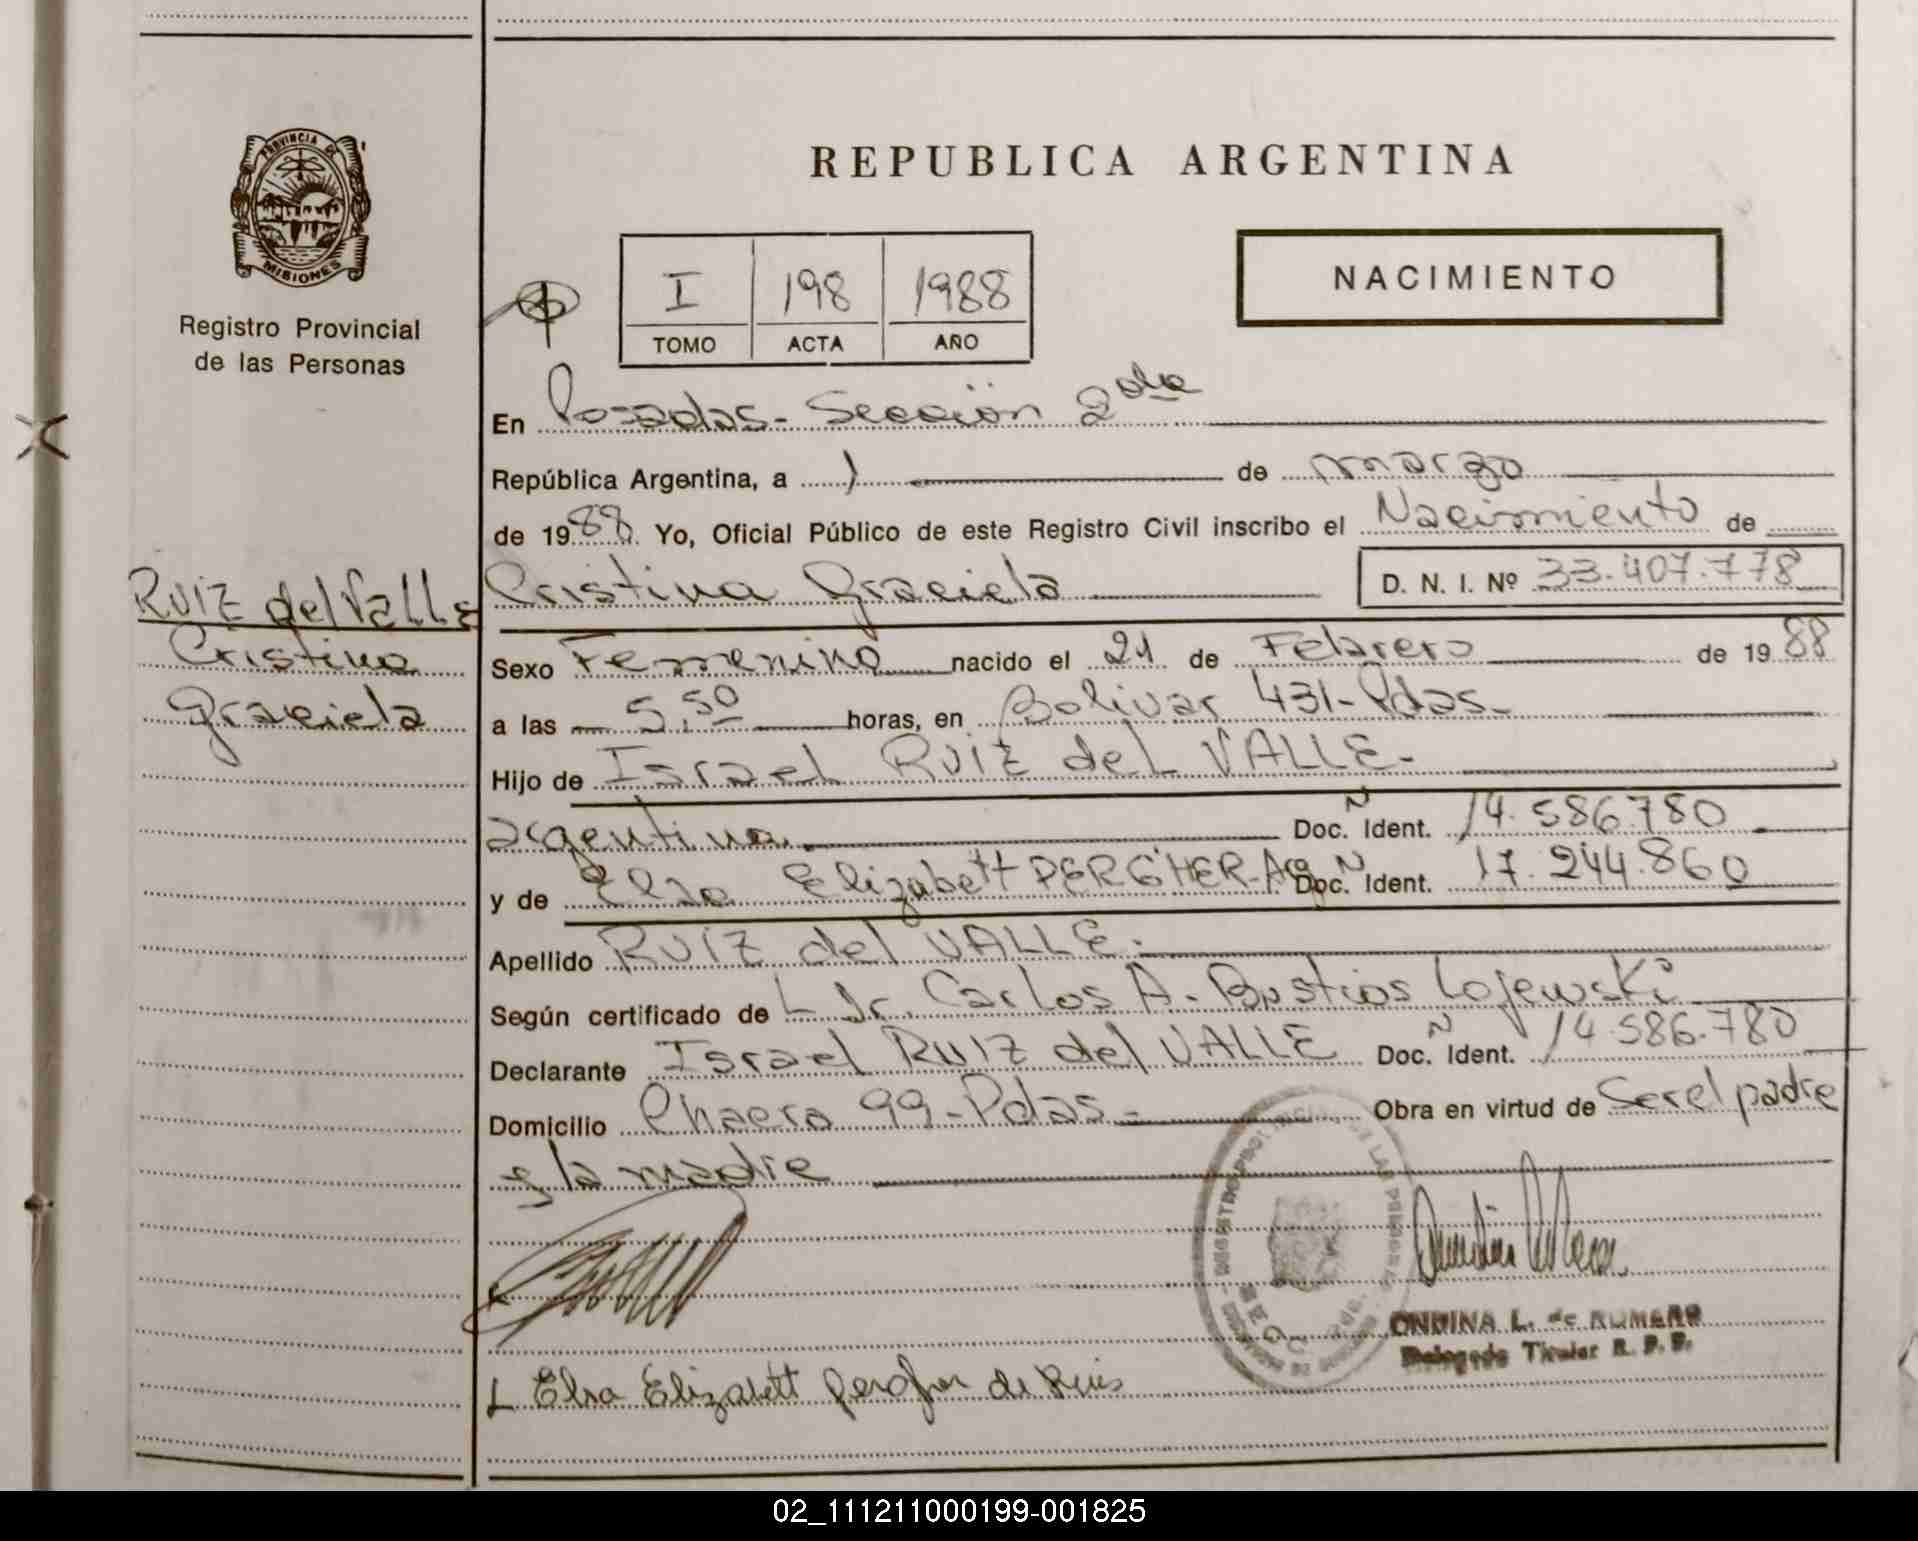 PROVINCIA DE
MISIONES
Registro Provincial
de las Personas
REPUBLICA ARGENTINA
I 198 1988
TOMO ACTA AÑO
NACIMIENTO
En Posadas - Sección 2da
República Argentina, a 1 de marzo
de 1988. Yo, Oficial Público de este Registro Civil inscribo el Nacimiento de
Cristina Graciela D. N. I. Nº 33.407.778
Ruiz del Valle
Cristina
Graciela
Sexo Femenino nacido el 21 de Febrero de 1988
a las 5,50 horas, en Bolivar 431 - Pdas -
Hijo de Israel RUIZ del VALLE -
argentina. Doc. Ident. 14.586.780
y de Elsa Elizabett PERGHER - Arg Doc. Ident. 17.244.860
Apellido RUIZ del VALLE.
Según certificado de Dr. Carlos A. Bustios Lojewski
Declarante Israel RUIZ del VALLE Doc. Ident. 14.586.780
Domicilio Chacra 99 - Pdas - Obra en virtud de Ser el padre
y la madre
ONDINA L. de ROMERO
Delegada Titular R. P. P.
Elsa Elizabett de Ruis
02_111211000199-001825